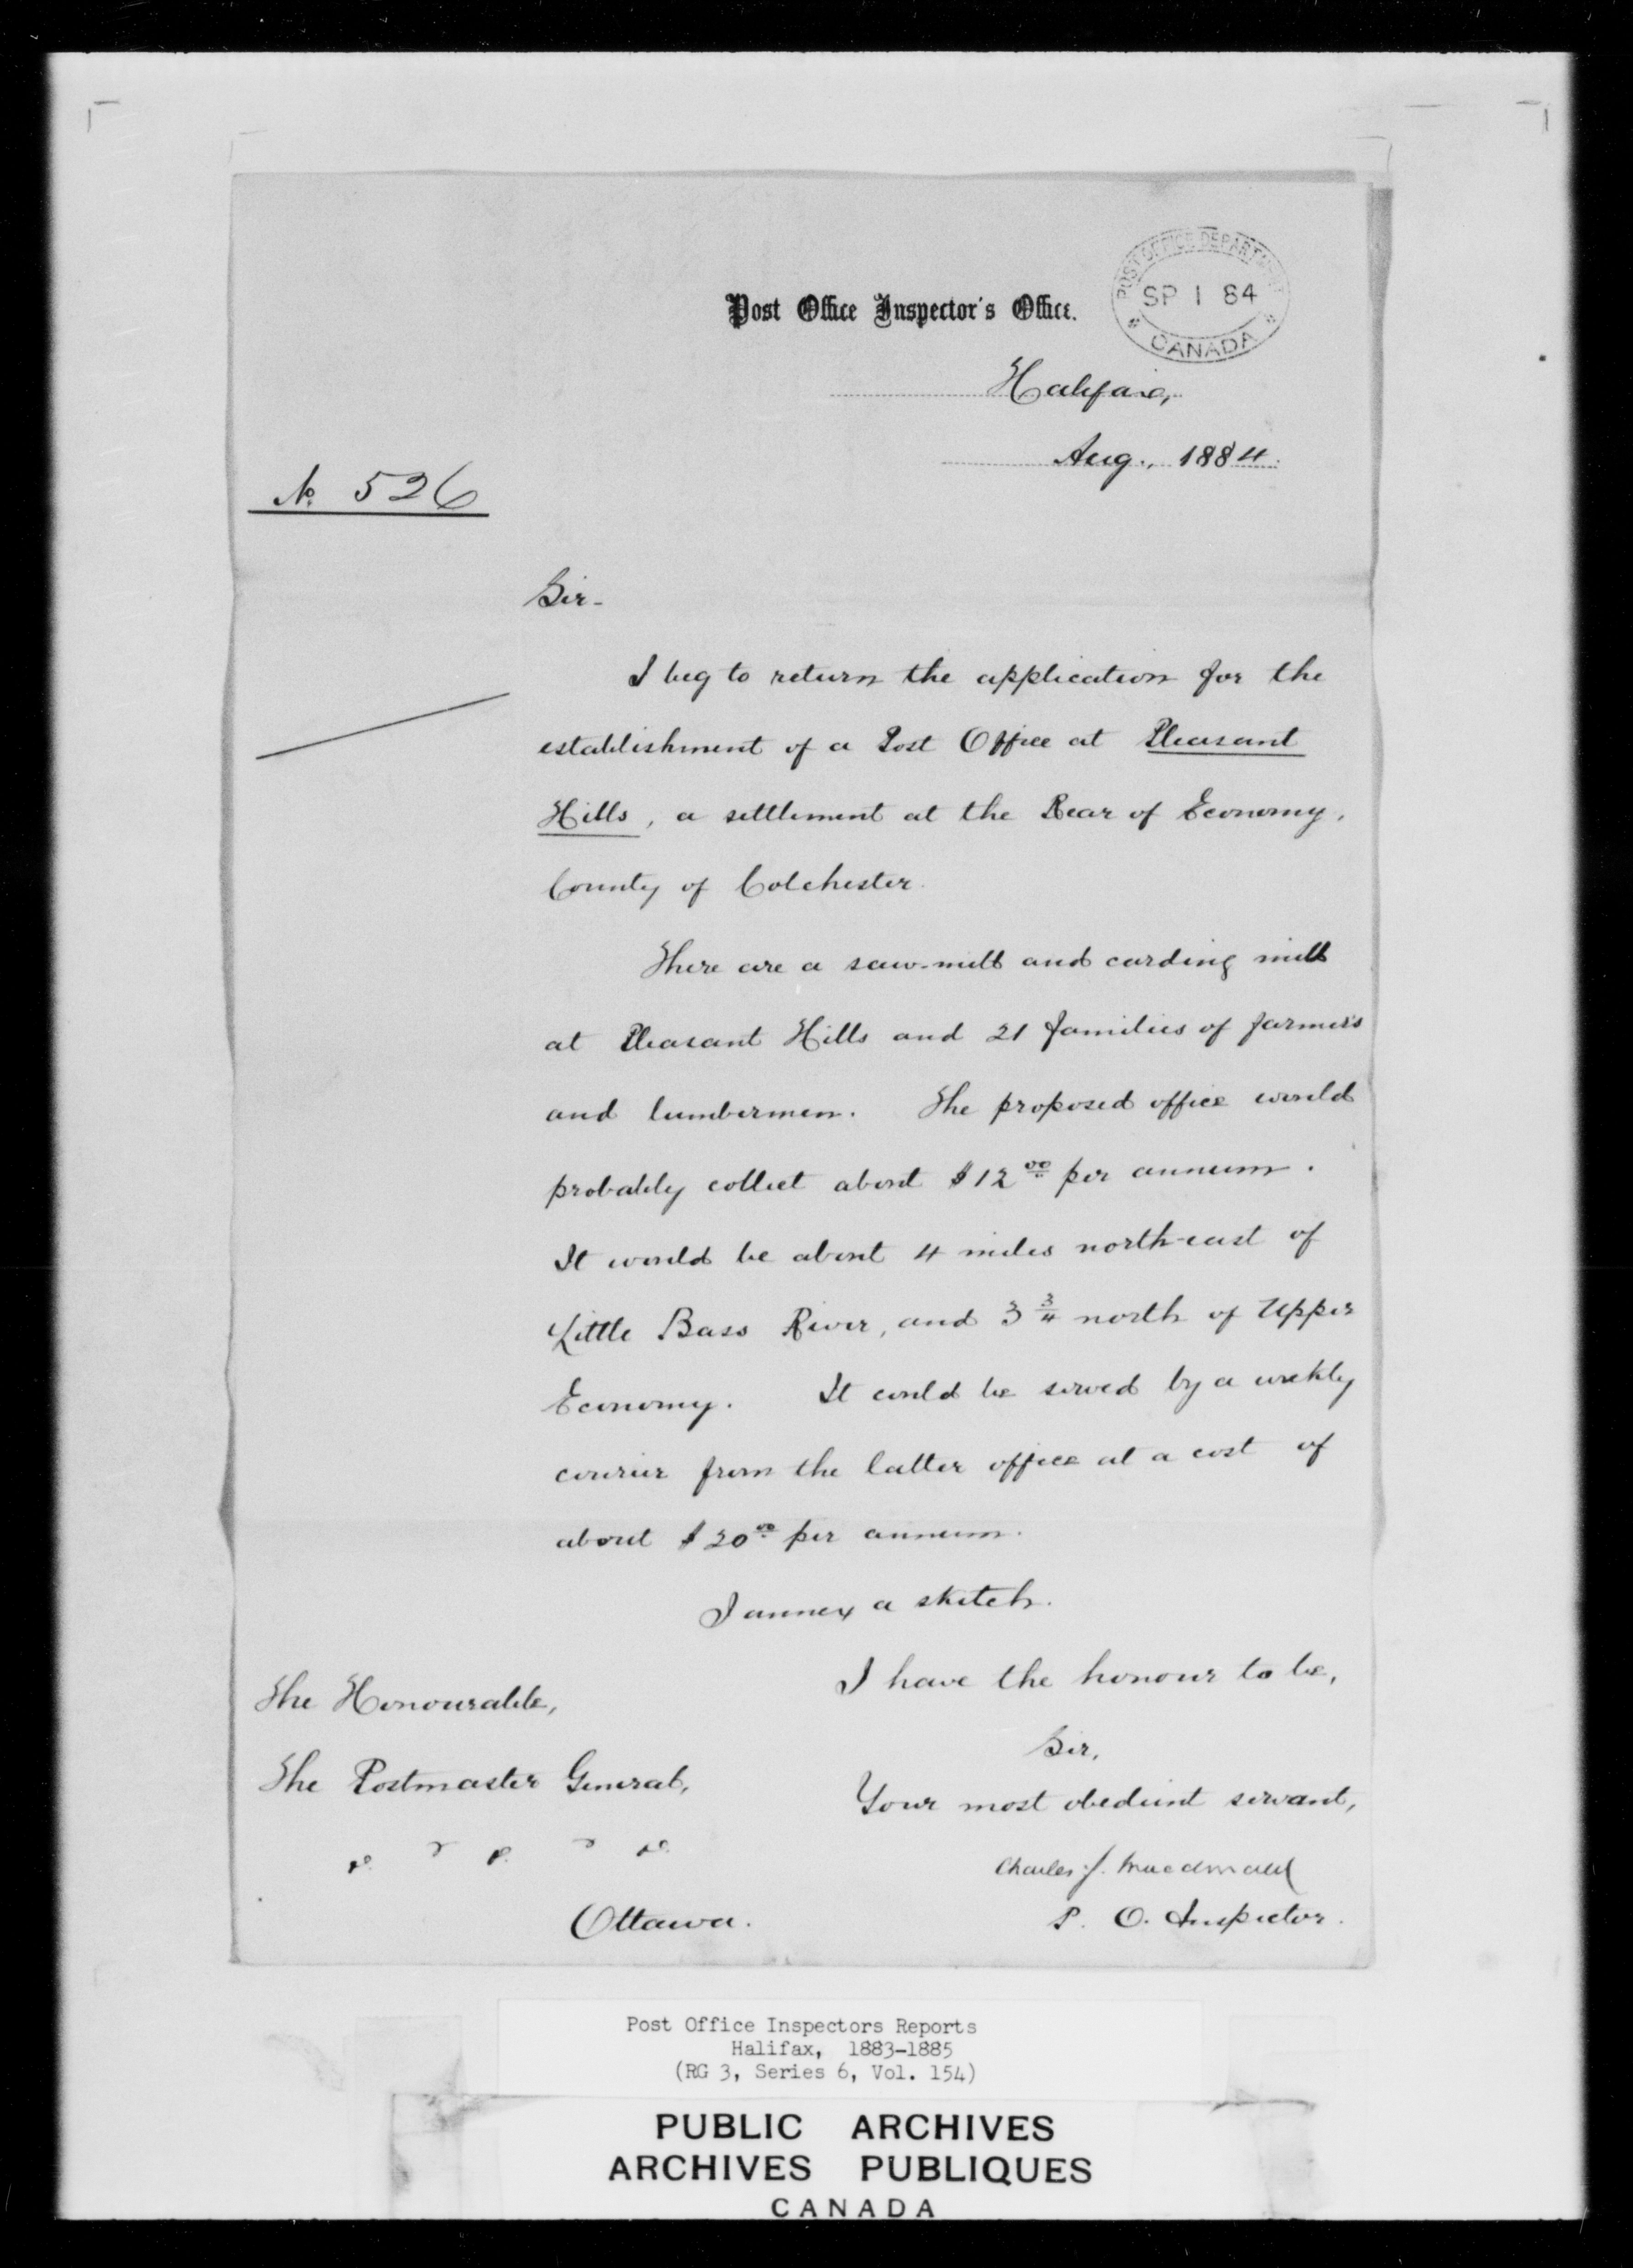 POST OFFICE DEPARTMENT
SP 1 84
CANADA
Post Office Inspector's Office.
Halifax,
Aug., 1884.
No. 526
Sir-
I beg to return the application for the
establishment of a Post Office at Pleasant
Hills, a settlement at the Rear of Economy,
County of Colchester.
There are a saw-mill and carding mill
at Pleasant Hills and 21 families of farmers
and lumbermen. The proposed office would
probably collect about $12 00 per annum.
It would be about 4 miles north-east of
Little Bass River, and 3 3/4 north of Upper
Economy. It could be served by a weekly
courier from the latter office at a cost of
about $20 00 per annum.
I annex a sketch.
I have the honour to be,
Sir,
Your most obedient servant,
Charles J. Macdonald
P. O. Inspector.
The Honourable,
The Postmaster General,
Ottawa.
Post Office Inspectors Reports
Halifax, 1883-1885
(RG 3, Series 6, Vol. 154)
PUBLIC ARCHIVES
ARCHIVES PUBLIQUES
CANADA